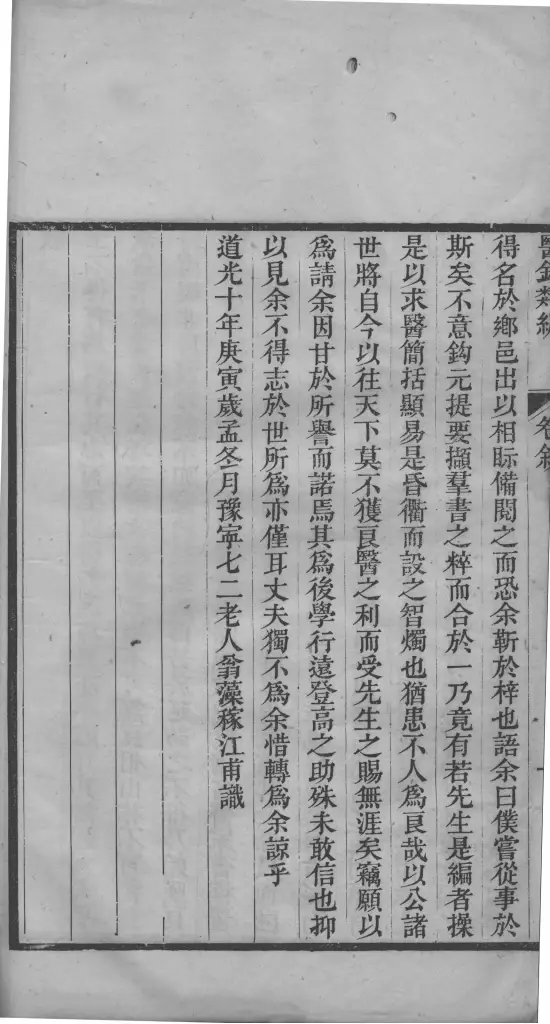 醫鈔類編 卷敘
得名於鄉邑出以相眎備閱之而恐余靳於梓也語余曰僕嘗從事於
斯矣不意鈎元提要擷羣書之粹而合於一乃竟有若先生是編者操
是以求醫簡括顯易是昏衢而設之智燭也猶患不人爲良哉以公諸
世將自今以往天下莫不獲良醫之利而受先生之賜無涯矣竊願以
爲請余因甘於所譽而諾焉其爲後學行遠登高之助殊未敢信也抑
以見余不得志於世所爲亦僅耳丈夫獨不爲余惜轉爲余諒乎
道光十年庚寅歲孟冬月豫寧七二老人翁藻稼江甫識